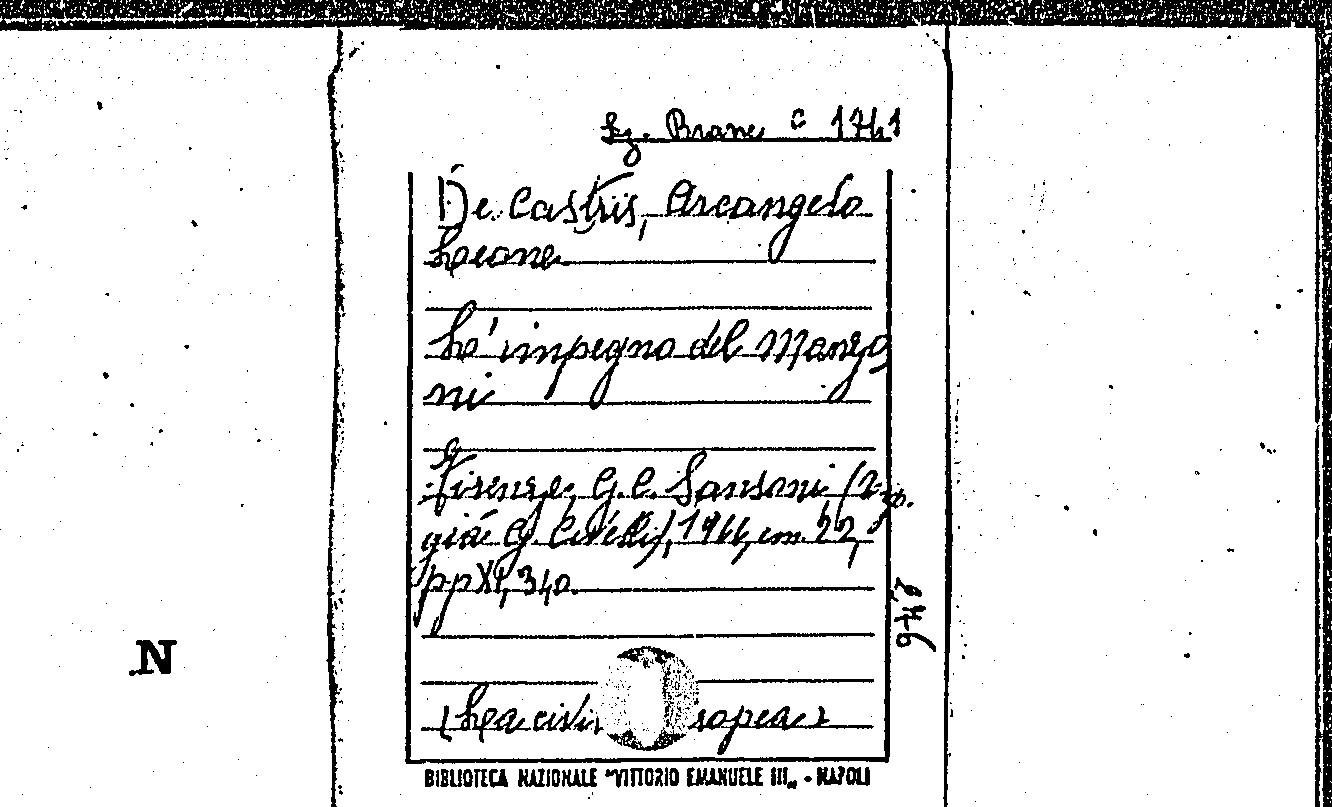 Sz. Branc C 1741
De Castris, Arcangelo
Leone
L'impegno del Manzo
ni
Firenze, G. C. Sansoni (Tip.
già G. Civelli), 1966, cm. 22,
pp XI, 340.
276
N
(La civi ropea 2
BIBLIOTECA NAZIONALE "VITTORIO EMANUELE III„ - NAPOLI